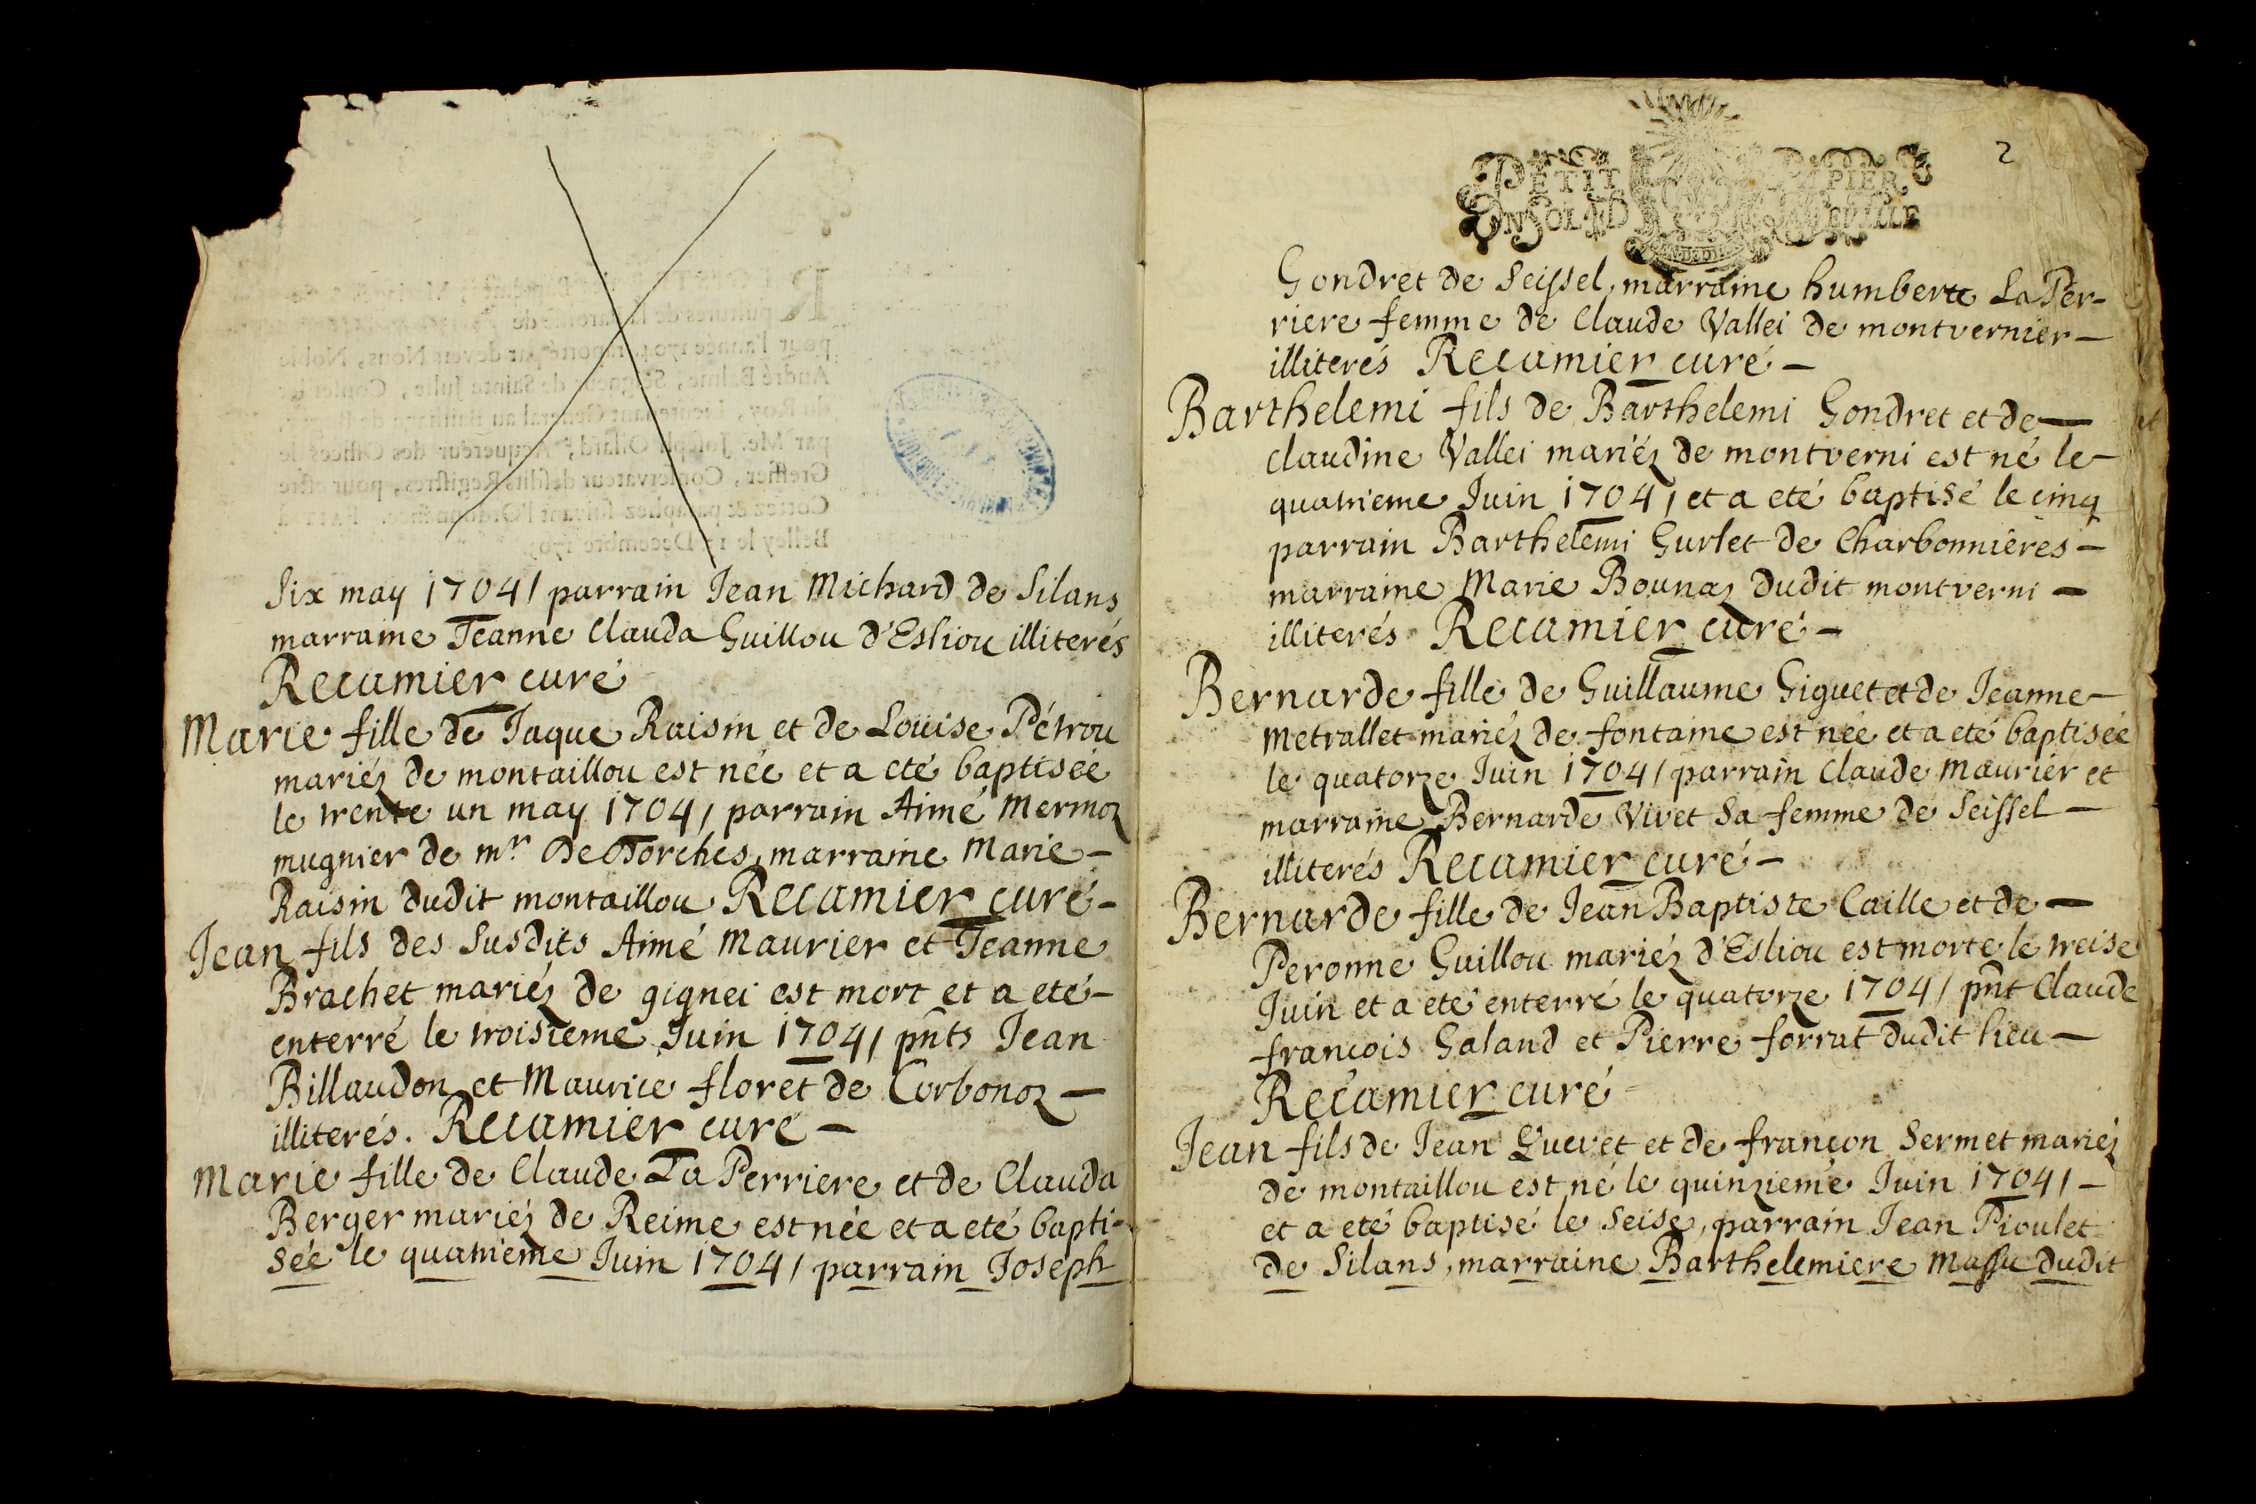 Six may 1704 / parrain Jean Michard de Silans
marraine Jeanne Clauda Guillou d'Esliou illiterés
Recamier curé
Marie fille de Jaque Raisin et de Louise Pétrou
mariéz de montaillou est née et a eté baptisée
le trente un may 1704 / parrain Aimé Mermoz
mugnier de mr De Dorches, marraine Marie -
Raisin dudit montaillou Recamier curé -
Jean fils des Susdits Aimé Maurier et Jeanne
Brachet mariéz de gignei est mort et a eté -
enterré le troisieme Juin 1704 / pnts Jean
Billaudon et Maurice floret de Corbonoz -
illiterés. Recamier curé -
Marie fille de Claude La Perriere et de Clauda
Berger mariéz de Reime est née et a eté bapti-
sée le quatrieme Juin 1704 / parrain Joseph
2
PETIT PAPIER
Gondret de Seissel, marraine humberte La Per-
riere femme de Claude Vallei de montvernier -
illiterés Recamier curé -
Barthelemi fils de Barthelemi Gondret et de -
claudine Vallei mariéz de montverni est né le -
quatrieme Juin 1704 / et a eté baptisé le cinq
parrain Barthelemi Gurlet de Charbonnieres -
marraine Marie Bounaz dudit montverni -
illiterés Recamier curé -
Bernarde fille de Guillaume Giguet et de Jeanne -
Metrallet mariéz de fontaine est née et a eté baptisée
le quatorze Juin 1704 / parrain Claude Maurier et
marraine Bernarde Vivet Sa femme de Seissel -
illiterés Recamier curé -
Bernarde fille de Jean Baptiste Caille et de -
Peronne Guillou mariéz d'Esliou est morte le treise
Juin et a eté enterré le quatorze 1704 / pnt Claude
francois Galand et Pierre forrat dudit lieu -
Recamier curé
Jean fils de Jean Guevet et de francon Sermet mariéz
de montaillou est né le quinzieme Juin 1704 / -
et a eté baptisé le Seise, parrain Jean Pioulet
de Silans, marraine Barthelemiere Massu dudit